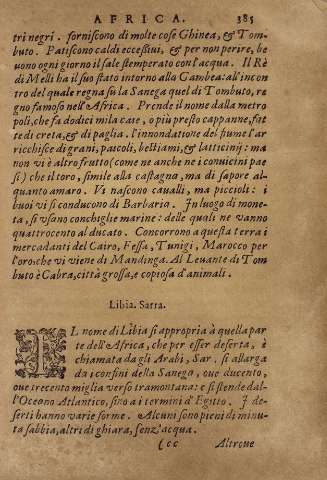 AFRICA. 385
tri negri. forniscono di molte cose Ghinea, & Tom-
buto. Patiscono caldi eccessiui, & per non perire, be
uono ogni giorno il sale stemperato con l'acqua. Il Rè
di Melli ha il suo stato intorno alla Gambea: all'incon
tro del quale regna sù la Sanega quel di Tombuto, re
gno famoso nell'Africa. Prende il nome dalla metro
poli, che fa dodici mila case, o più presto cappanne, fat
te di creta, & di paglia. l'innondatione del fiume l'ar
ricchisce di grani, pascoli, bestiami, & latticinij: ma
non vi è altro frutto (come ne anche ne i conuicini pae
si) che il toro, simile alla castagna, ma di sapore al-
quanto amaro. Vi nascono caualli, ma piccioli: i
buoi vi si conducono di Barbaria. In luogo di mone-
ta, si vsano conchiglie marine: delle quali ne vanno
quattrocento al ducato. Concorrono a questa terra i
mercadanti del Cairo, Fessa, Tunigi, Marocco per
l'oro: che vi viene di Mandinga. Al Leuante di Tom
buto è Cabra, città grossa, e copiosa d'animali.
Libia. Sarra.
IL nome di Libia si appropria à quella par
te dell'Africa, che per esser deserta, è
chiamata da gli Arabi, Sar. si allarga
da i confini della Sanega, oue ducento,
oue trecento miglia verso tramontana: e si stende dal-
l'Oceano Atlantico, sino a i termini d'Egitto. I de-
serti hanno varie forme. Alcuni sono pieni di minu-
ta sabbia, altri di ghiara, senz'acqua.
Ccc Altroue